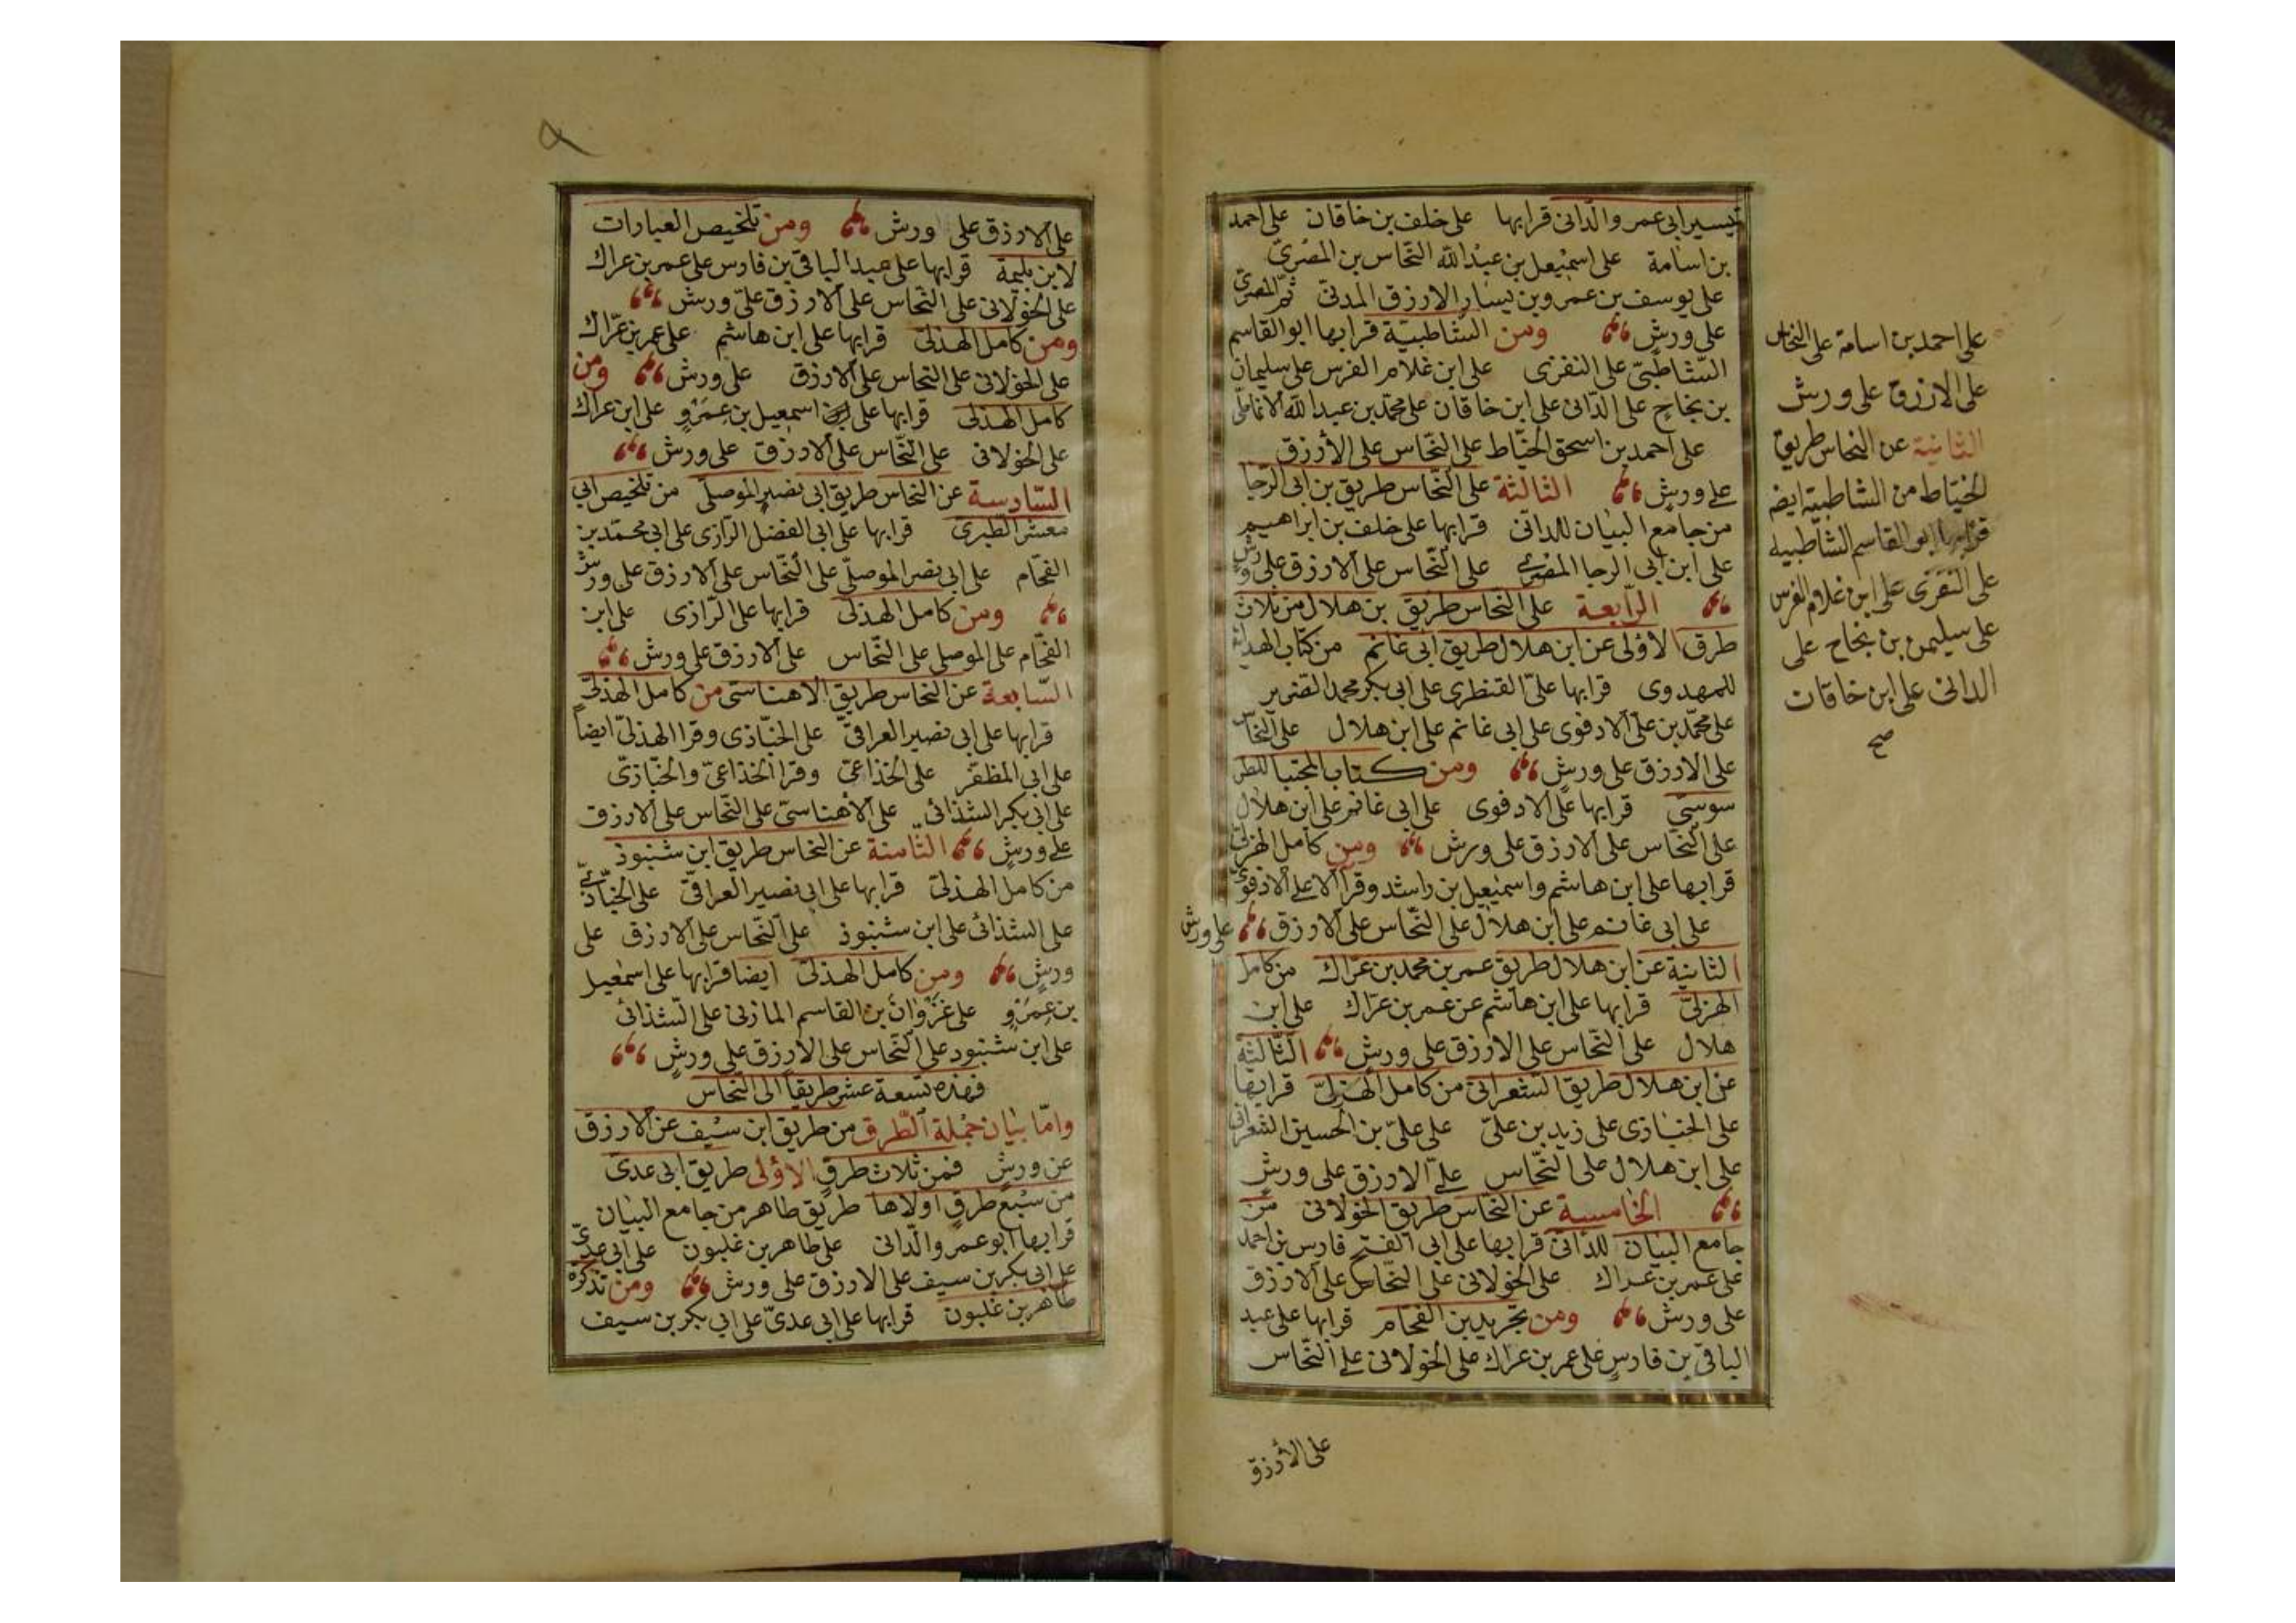 تيسير ابى عمر والدانى قرابها على خلف بن خاقان على احمد
بن اسامة على اسمعيل بن عبدالله النحاس بن المصرى
على يوسف بن عمرو بن يسار الازرق المدنى ثم المصرى
على ورش ومن الشاطبية قرابها ابو القاسم
الشاطبى على النفزى على ابن غلام الفرس على سليمان
بن نجاح على الدانى على ابن خاقان على محمد بن عبدالله الانماطى
على احمد بن اسحق الخياط على النحاس على الأزرق
على ورش الثالثة على النحاس طريق بن ابى الرجا
من جامع البيان للدانى قرابها على خلف بن ابراهيم
على ابن ابى الرجا المصرى على النحاس على الازرق على ورش
الرابعة على النحاس طريق بن هلال من ثلاث
طرق الاولى عن ابن هلال طريق ابى غانم من كتاب الهداية
للمهدوى قرابها على القنطرى على ابى بكر محمد الضرير
على محمد بن على الادفوى على ابى غانم على ابن هلال على النحاس
على الازرق على ورش ومن كتاب المجتبا للطر
سوسى قرابها على الادفوى على ابى غانم على ابن هلال
على النحاس على الازرق على ورش ومن كامل الهزلى
قرابها على ابن هاشم واسمعيل بن راشد وقرآ لا على الادفوى
على ابى غانم على ابن هلال على النحاس على الازرق على ورش
الثانية عن ابن هلال طريق عمر بن محمد بن عراك من كامل
الهزلى قرابها على ابن هاشم عن عمر بن عراك على ابن
هلال على النحاس على الازرق على ورش الثالثة
عن ابن هلال طريق الشعرانى من كامل الهزلى قرابها
على الخبازى على زيد بن على على على بن الحسين الشعرانى
على ابن هلال على النحاس على الازرق على ورش
الخامسة عن النحاس طريق الخولانى من
جامع البيان للدانى قرابها على ابى الفتح فارس بن احمد
على عمر بن عراك على الخولانى على النحاس على الازرق
على ورش ومن تجريد بن الفحام قرابها على عبد
الباقى بن فارس على عمر بن عراك على الخولانى على النحاس
على الأزرق
على احمد بن اسامة على النحاس
على الازرق على ورش
الثانية عن النحاس طريق
الخياط من الشاطبية ايضا
قرابها ابو القاسم الشاطبية
على النفزى على ابن غلام الفرس
على سليمن بن نجاح على
الدانى على ابن خاقان
صح
٩
على الازرق على ورش ومن تلخيص العبارات
لابن بليمة قرابها على عبد الباقى بن فارس على عمر بن عراك
على الخولانى على النحاس على الازرق على ورش
ومن كامل الهذلى قرابها على ابن هاشم على عمر بن عراك
على الخولانى على النحاس على الازرق على ورش ومن
كامل الهذلى قرابها على اسمعيل بن عمرو على ابن عراك
على الخولانى على النحاس على الازرق على ورش
السادسة عن النحاس طريق ابى نصير الموصلى من تلخيص ابى
معشر الطبرى قرابها على ابى الفضل الرازى على ابى محمد بن
الفحام على ابى نصر الموصلى على النحاس على الازرق على ورش
ومن كامل الهذلى قرابها على الرازى على ابن
الفحام على الموصلى على النحاس على الازرق على ورش
السابعة عن النحاس طريق الاهناسى من كامل الهذلى
قرابها على ابى نصير العراقى على الخبازى وقرا الهذلى ايضا
على ابى المظفر على الخذاعى وقرا الخذاعى والخبازى
على ابى بكر الشذائى على الاهناسى على النحاس على الازرق
على ورش الثامنة عن النحاس طريق ابن شنبوذ
من كامل الهذلى قرابها على ابى نصير العراقى على الخبازى
على الشذائى على ابن شنبوذ على النحاس على الازرق على
ورش ومن كامل الهذلى ايضا قرابها على اسمعيل
بن عمرو على غزوان بن القاسم المازنى على الشذائى
على ابن شنبود على النحاس على الازرق على ورش
فهذه تسعة عشر طريقا الى النحاس
واما بيان جملة الطرق من طريق ابن سيف عن الازرق
عن ورش فمن ثلاث طرق الاولى طريق ابى عدى
من سبع طرق اولاها طريق طاهر من جامع البيان
قرابها ابو عمر والدانى على طاهر بن غلبون على ابى عدى
على ابى بكر بن سيف على الازرق على ورش ومن تذكرة
طاهر بن غلبون قرابها على ابى عدى على ابى بكر بن سيف